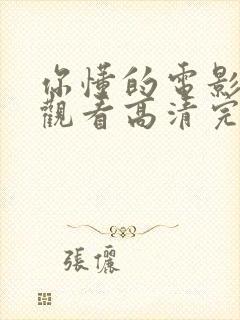 你懂的電影
觀看高清完
張儷